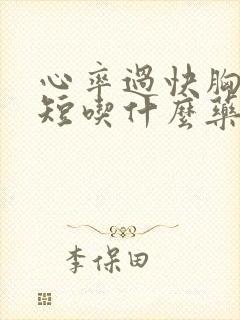 心率過快胸
短喫什麼藥
李保田